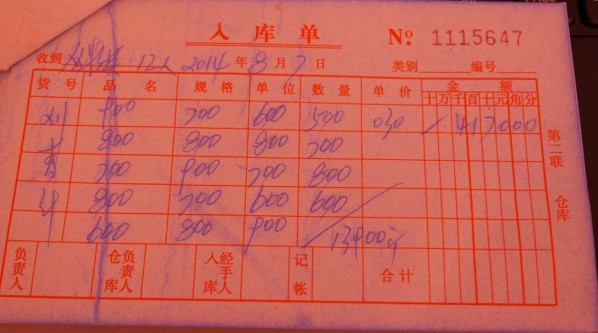 入库单 № 1115647
收到 12人 2014年8月7日 类别 编号
货号 品名 规格 单位 数量 单价 金额
十万千百十元角分
900 700 600 500 030 417000
800 800 800 700
700 900 700 800
800 700 600 600
600 800 900 13900
第二联 仓库
负责人 仓库负责人 入库经手人 记帐 合计